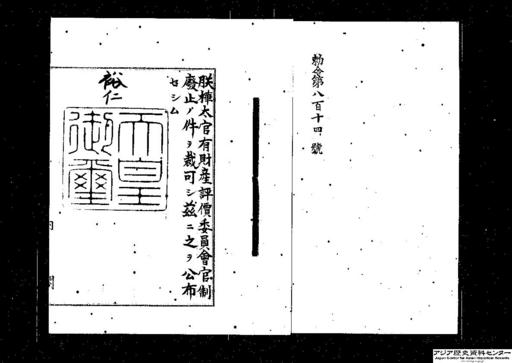 勅令第八百十四號
朕樺太官有財産評價委員會官制
廢止ノ件ヲ裁可シ茲ニ之ヲ公布
セシム
裕仁
天皇
御璽
内閣
アジア歴史資料センター
Japan Center for Asian Historical Records